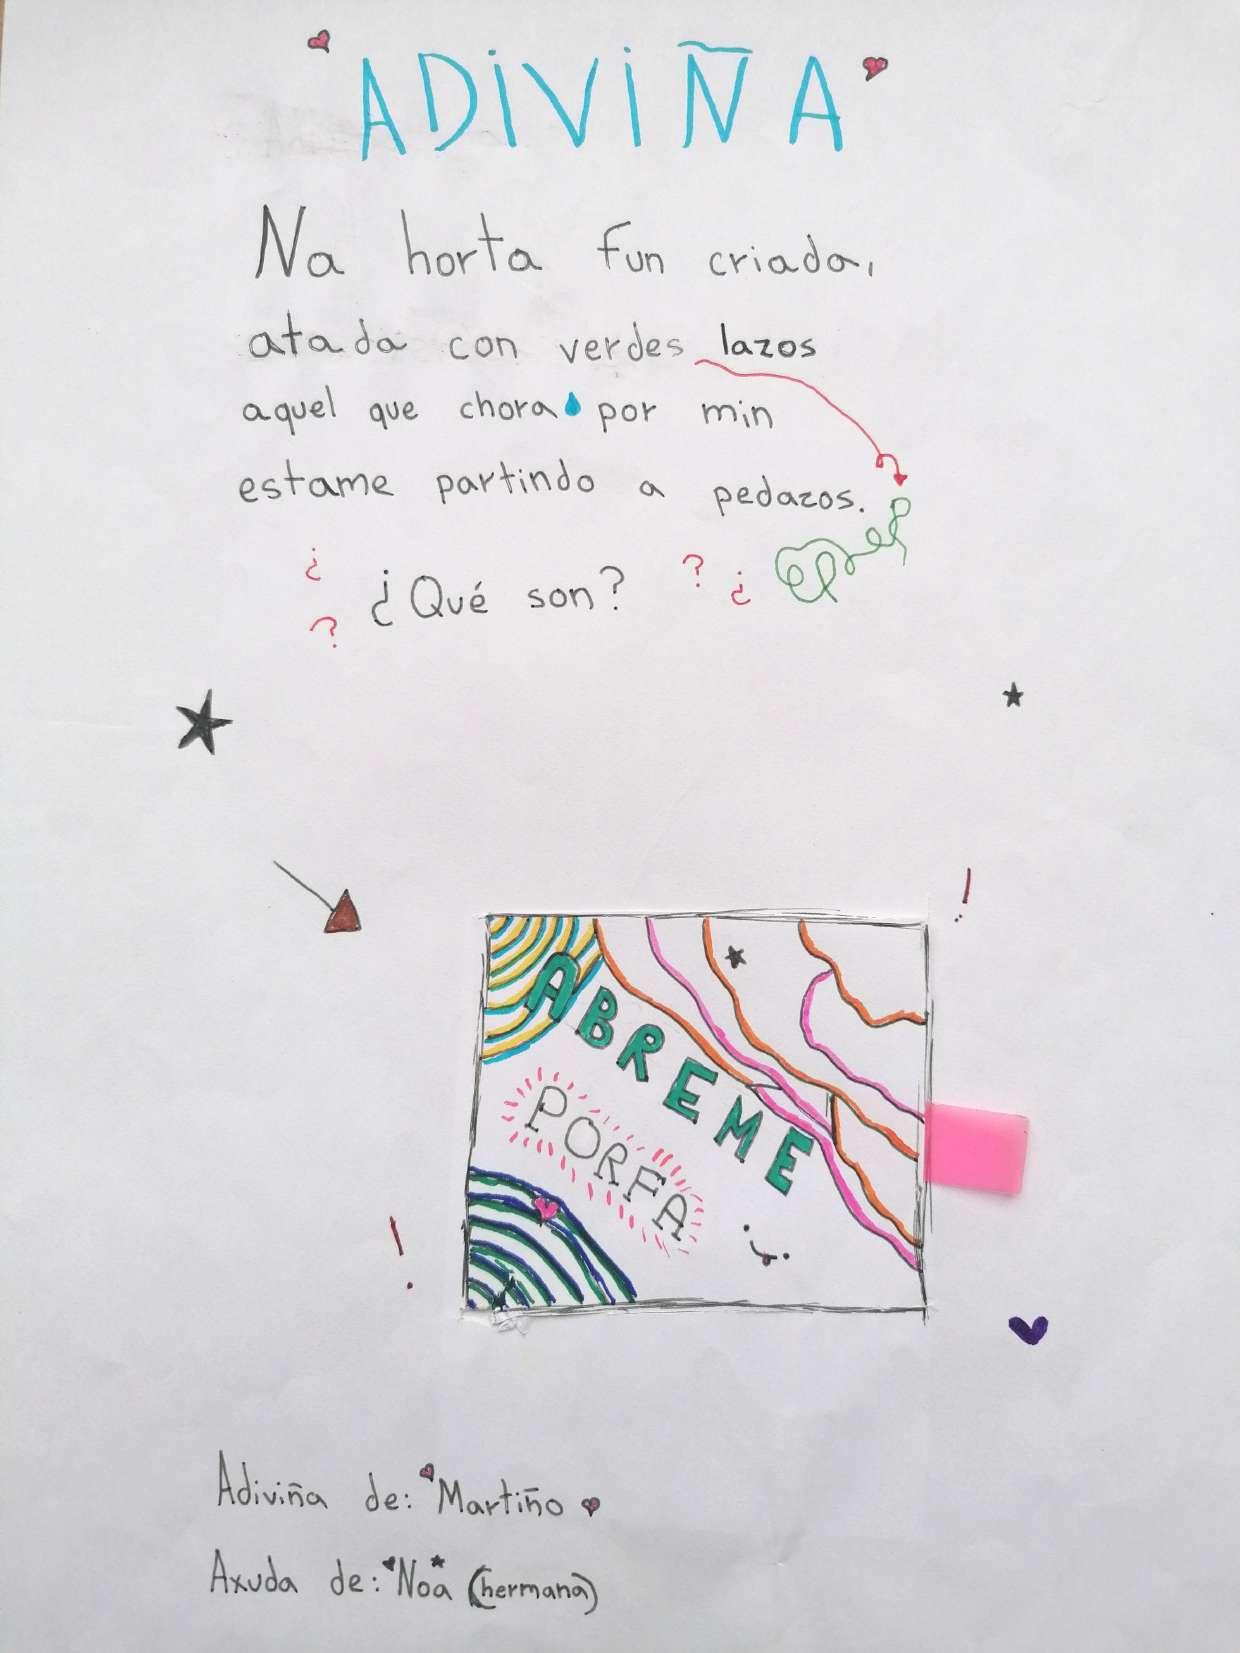 ADiViÑA
Na horta fun criada,
atada con verdes lazos
aquel que chora por min
estame partindo a pedazos.
¿
?
¿Qué son?
? ¿
!
ABREME
PORFA
!
Adiviña de: Martiño
Axuda de: Noa (hermana)